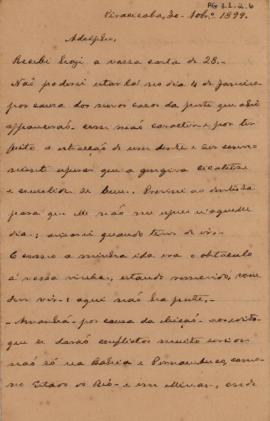 PG 1.1.2.6
Piracicaba, 30 Nobrº 1899.
Adelpho,
Recebi hoje a vossa carta de 28.
Não poderei estar lá no dia 4 de Janeiro
por causa dos novos casos da peste que ahi
appareceram. esse mao caracter e por ter
feito a extracção de um dente e ser
a gengiva cicatrize
Preveni ao dentista
para que elle não me espere n'aquelle
dia; avisarei quando tenho de ir.
E como a minha ida era o obstaculo
á vossa vinda, estando removido,
vir; aqui não ha peste.
Amanhã, por causa da eleição, acredito
que se darão conflictos muito serios
não só na Bahia e Pernambuco, como
no Estado do Rio e em Minas, onde